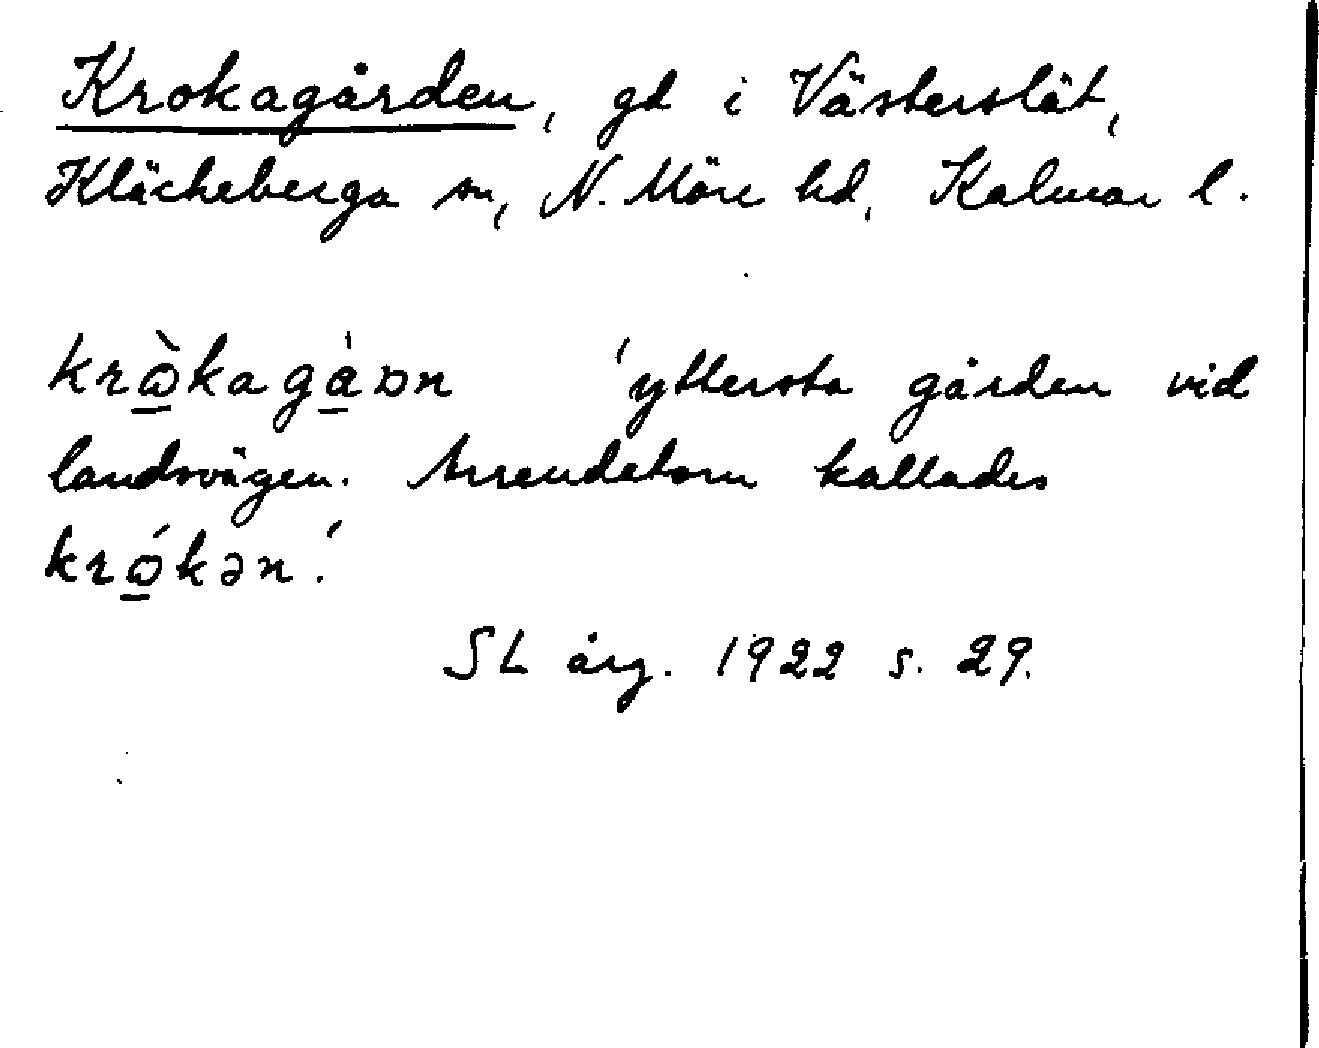 Krokagården, gd i Västerslät,
Kläckeberga sn, N. Möre hd, Kalmar l.
krò̠kagá̠ɒn 'yttersta gården vid
landsvägen. Arrendetorn kallades
kró̠kən.'
SL årg. 1922 s. 29.